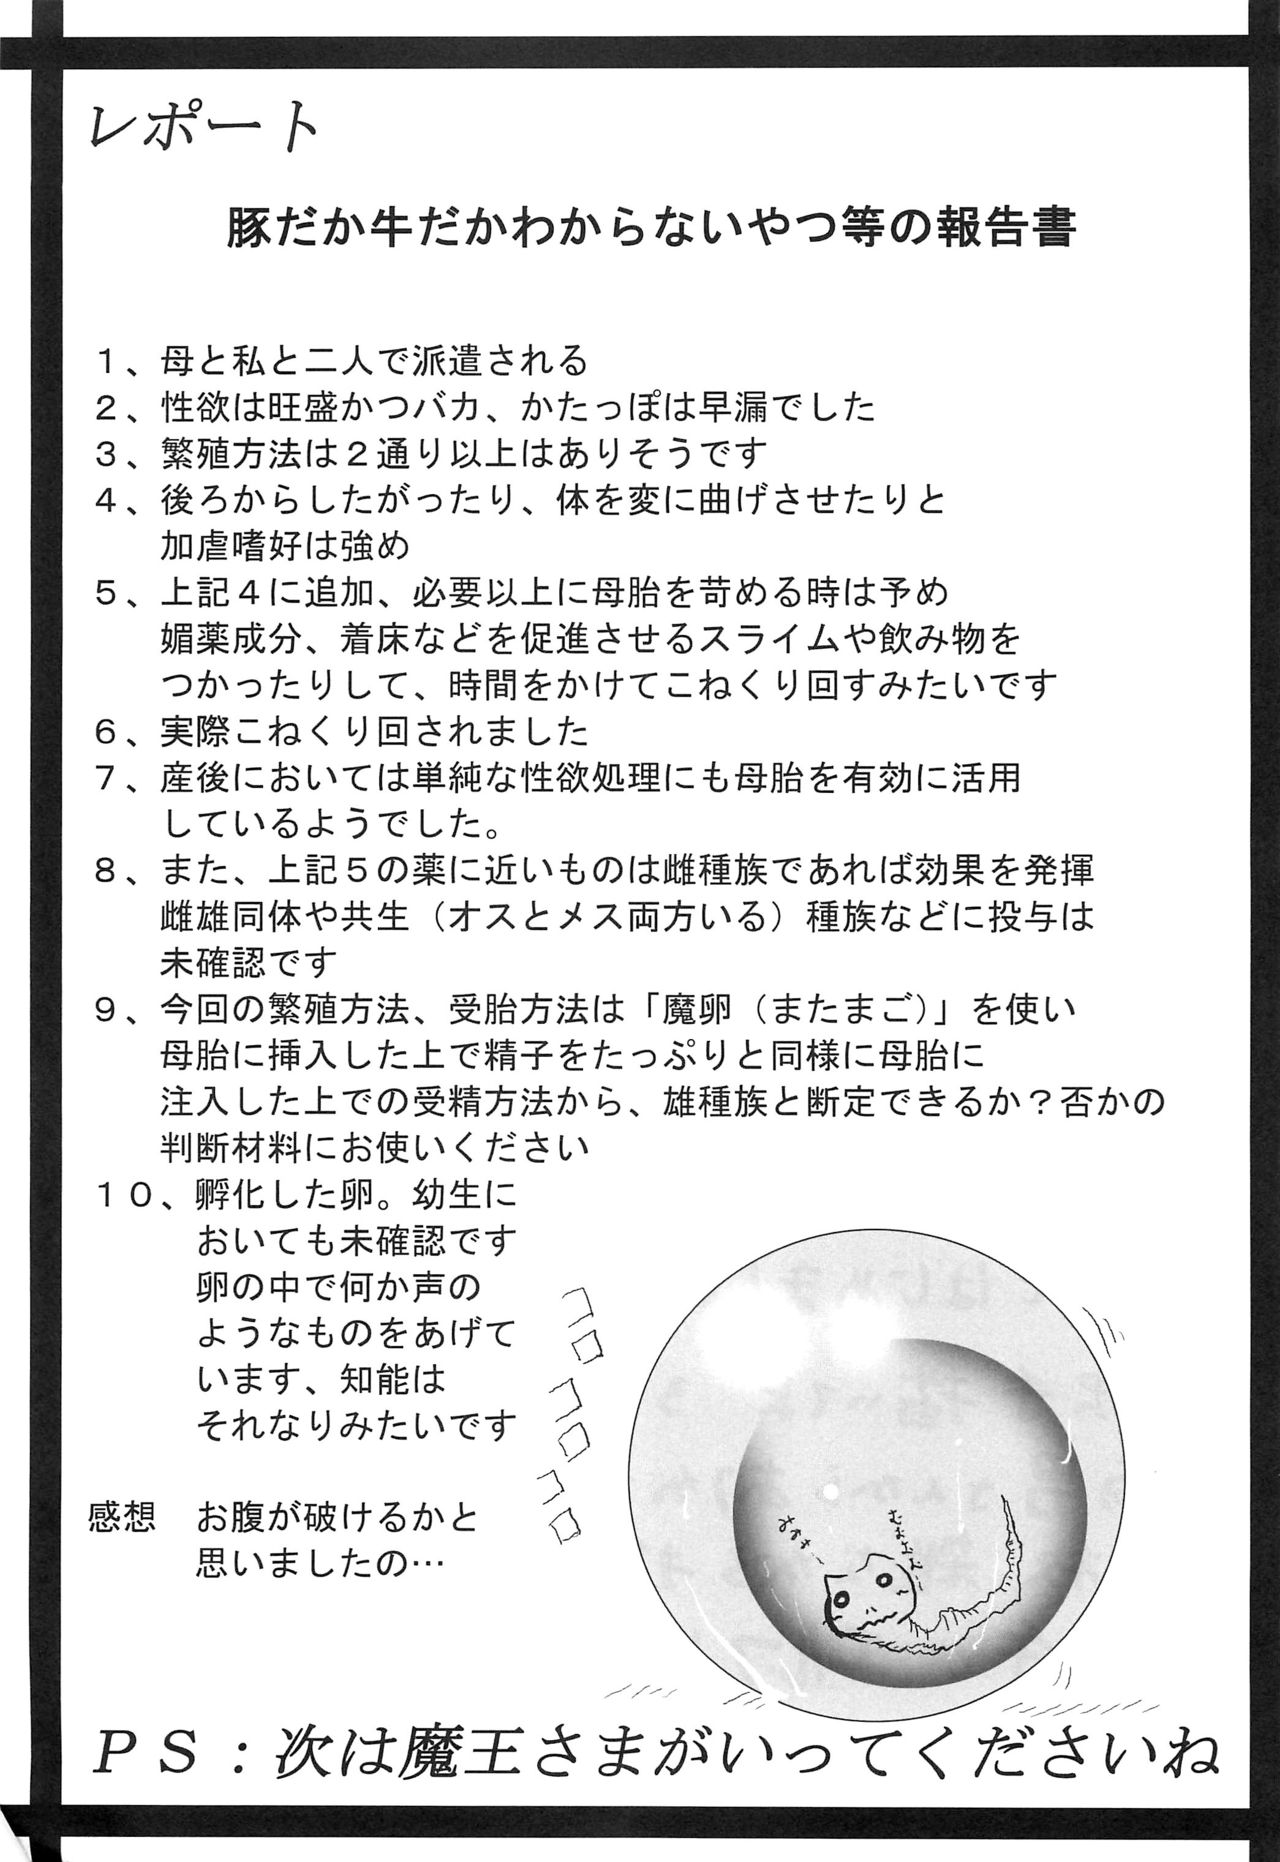 レポート
豚だか牛だかわからないやつ等の報告書
１、母と私と二人で派遣される
２、性欲は旺盛かつバカ、かたっぽは早漏でした
３、繁殖方法は２通り以上はありそうです
４、後ろからしたがったり、体を変に曲げさせたりと
加虐嗜好は強め
５、上記４に追加、必要以上に母胎を苛める時は予め
媚薬成分、着床などを促進させるスライムや飲み物を
つかったりして、時間をかけてこねくり回すみたいです
６、実際こねくり回されました
７、産後においては単純な性欲処理にも母胎を有効に活用
しているようでした。
８、また、上記５の薬に近いものは雌種族であれば効果を発揮
雌雄同体や共生（オスとメス両方いる）種族などに投与は
未確認です
９、今回の繁殖方法、受胎方法は「魔卵（またまご）」を使い
母胎に挿入した上で精子をたっぷりと同様に母胎に
注入した上での受精方法から、雄種族と断定できるか？否かの
判断材料にお使いください
１０、孵化した卵。幼生に
おいても未確認です
卵の中で何か声の
ようなものをあげて
います、知能は
それなりみたいです
コロ
コロ
コロ
感想　お腹が破けるかと
思いましたの…
ＰＳ：次は魔王さまがいってくださいね